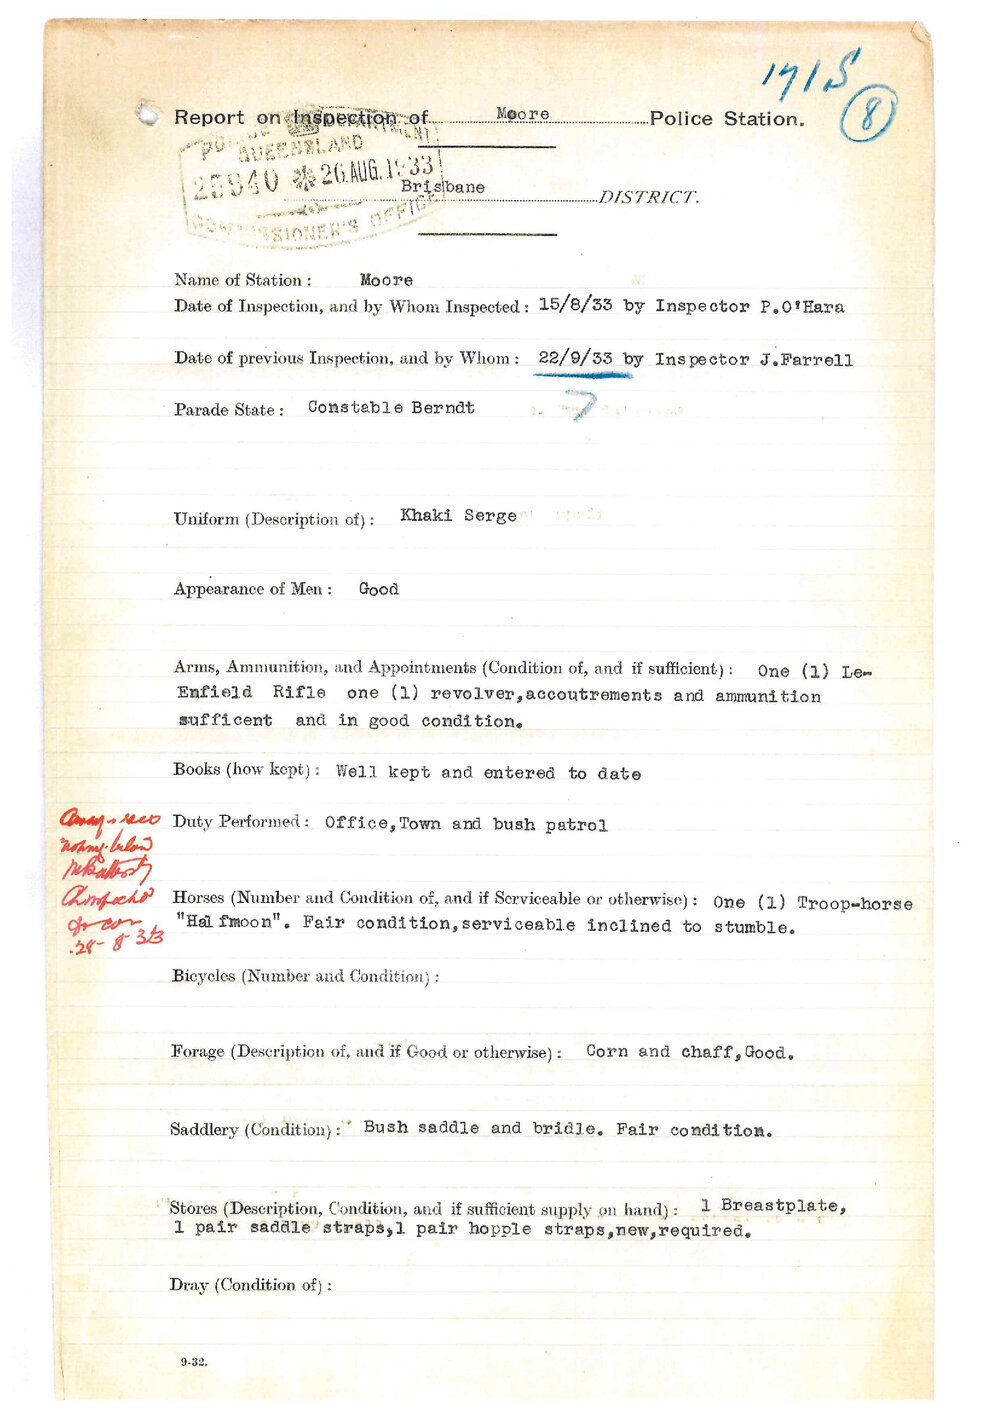 171S
8
Report on Inspection of Moore Police Station.
POLICE DEPARTMENT
QUEENSLAND
25940 26.AUG.1933
COMMISSIONER'S OFFICE
Brisbane DISTRICT.
Name of Station : Moore
Date of Inspection, and by Whom Inspected : 15/8/33 by Inspector P.O'Hara
Date of previous Inspection, and by Whom : 22/9/33 by Inspector J.Farrell
?
Parade State : Constable Berndt
Uniform (Description of) : Khaki Serge
Appearance of Men : Good
Arms, Ammunition, and Appointments (Condition of, and if sufficient) : One (1) Le-
Enfield Rifle one (1) revolver,accoutrements and ammunition
sufficent and in good condition.
Books (how kept) : Well kept and entered to date
Duty Performed : Office,Town and bush patrol
Horses (Number and Condition of, and if Serviceable or otherwise) : One (1) Troop-horse
"Halfmoon". Fair condition,serviceable inclined to stumble.
28-8-33
Bicycles (Number and Condition) :
Forage (Description of, and if Good or otherwise) : Corn and chaff,Good.
Saddlery (Condition) : Bush saddle and bridle. Fair condition.
Stores (Description, Condition, and if sufficient supply on hand) : 1 Breastplate,
1 pair saddle straps,1 pair hopple straps,new,required.
Dray (Condition of) :
9-32.